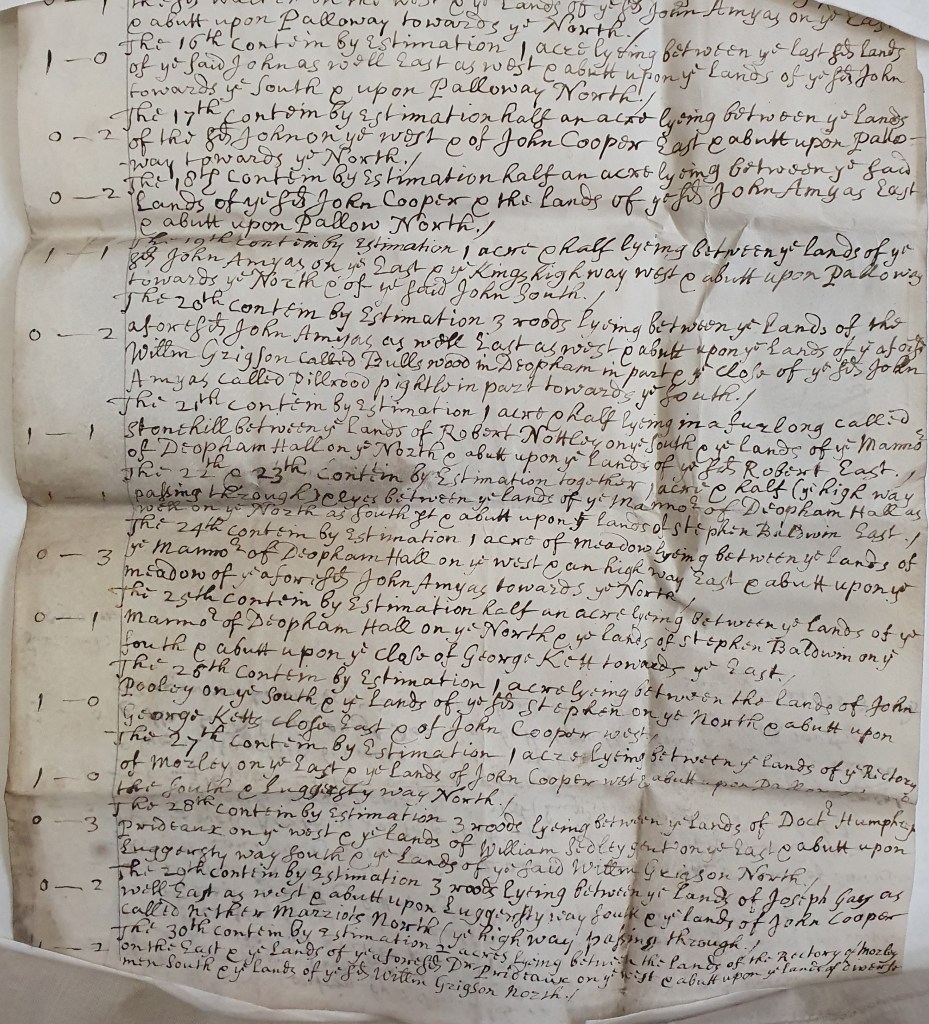 ye Lands of ye sd John Amyas on ye East
& abutt upon Palloway towards ye North./
The 16th Contein by Estimation 1 acre lyeing between ye last sd Lands
1 — 0 of ye said John as well East as west & abutt upon ye Lands of ye sd John
towards ye South & upon Palloway North./
The 17th Contein by Estimation half an acre lyeing between ye Lands
0 — 2 of the sd John on ye west & of John Cooper East & abutt upon Pallo-
way towards ye North./
The 18th Contein by Estimation half an acre lyeing between ye said
0 — 2 Lands of ye sd John Cooper & the lands of ye sd John Amyas East
& abutt upon Pallow North./
The 19th Contein by Estimation 1 acre & half lyeing between ye lands of ye
1 — 1 sd John Amyas on ye East & ye Kings high way west & abutt upon Palloway
towards ye North & of ye said John South./
The 20th Contein by Estimation 3 roods lyeing between ye Lands of the
0 — 2 aforesd John Amyas as well East as west & abutt upon ye Lands of ye aforesd
Willm Grigson called Bulls wood in Deopham in part & ye close of ye sd John
Amyas called Pillrood pightle in part towards ye South./
The 21th Contein by Estimation 1 acre & half lyeing in a furlong called
1 — 1 Stonehill between ye lands of Robert Nottley on ye South & ye lands of ye Mannor
of Deopham Hall on ye North & abutt upon ye Lands of ye sd Robert East./
The 22th & 23th Contein by Estimation together 1 acre & half (ye high way
1 — 1 passing through) & lyes between ye lands of ye Mannor of Deopham Hall as
well on ye North as South & abutt upon ye lands of Stephen Baldwin East./
The 24th Contein by Estimation 1 acre of meadow lyeing between ye Lands of
0 — 3 ye Mannor of Deopham Hall on ye west & an high way East & abutt upon ye
meadow of ye aforesd John Amyas towards ye North./
The 25th Contein by Estimation half an acre lyeing between ye lands of ye
0 — 1 Mannor of Deopham Hall on ye North & ye lands of Stephen Baldwin on ye
South & abutt upon ye close of George Kett towards ye East./
The 26th Contein by Estimation 1 acre lyeing between the lands of John
1 — 0 Pooley on ye South & ye Lands of ye sd Stephen on ye North & abutt upon
George Ketts close East & of John Cooper west./
The 27th Contein by Estimation 1 acre lyeing between ye lands of ye Rectory
1 — 0 of Morley on ye East & ye Lands of John Cooper west & abutt upon
the South & Luggersty way North./
The 28th Contein by Estimation 3 roods lyeing between ye Lands of Doctr Humphry
0 — 3 Prideaux on ye west & ye lands of William Sedley gent on ye East & abutt upon
Luggersty way South & ye Lands of ye said Willm Grigson North./
The 29th Contein by Estimation 3 roods lyeing between ye Lands of Joseph Gay as
0 — 2 well East as west & abutt upon Luggersty way South & ye lands of John Cooper
called Nether Marriots North (ye high way passing through./
The 30th Contein by Estimation 2 acres lyeing between the lands of the Rectory of Morley
1 — 2 on the East & ye Lands of ye aforesd Dr Prideaux on ye west & abutt upon ye lands of
men South & ye lands of ye sd Willm Grigson North./